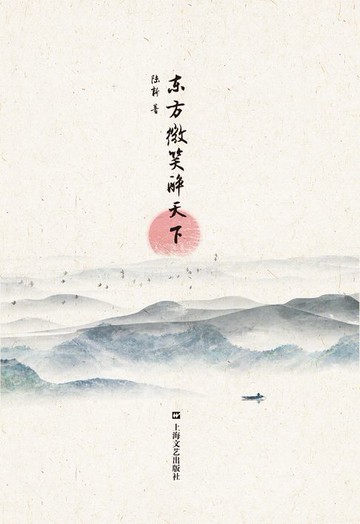 东方微笑醉天下
陆新 著
上海文艺出版社